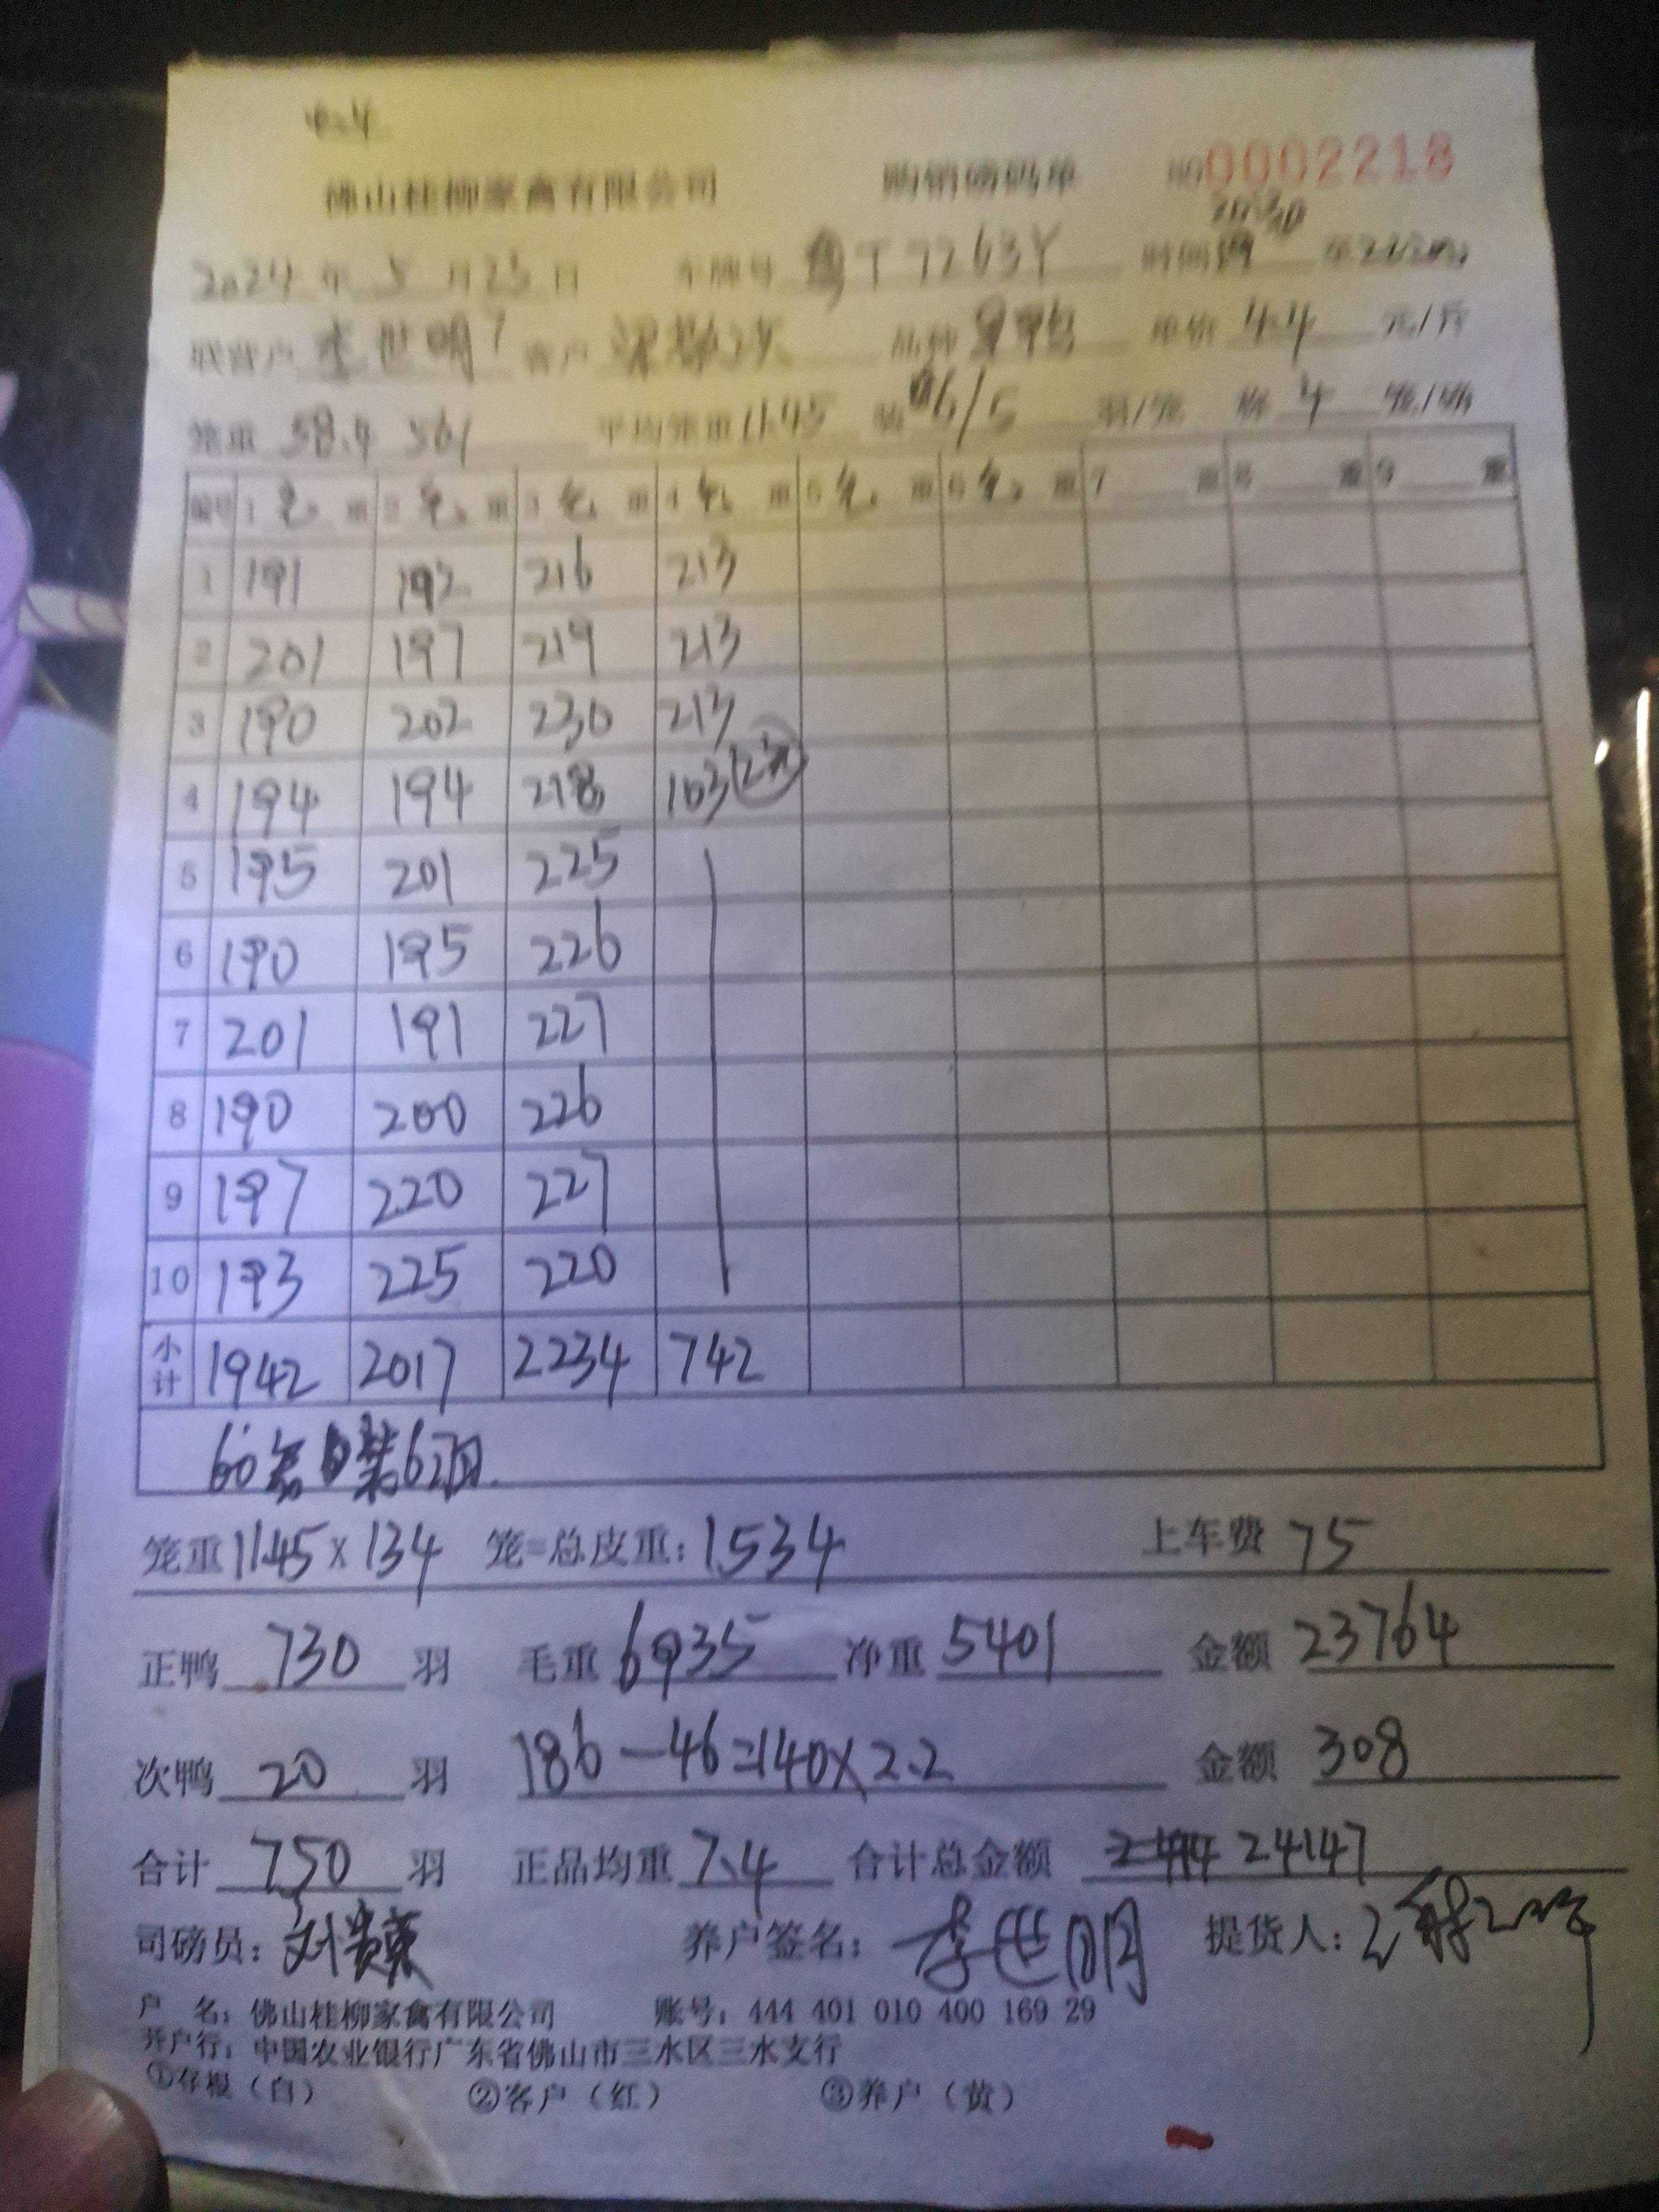 佛山桂柳家禽有限公司 购销磅码单 №0002218
20:30
2024 年 5 月 23 日 车牌号 粤T7263Y 时间 至
联营户 李世明 客户 品种 单价 4.4 元/斤
笼重 58.4 561 平均笼重 11.45 装 6/5 羽/笼 称 4 笼/磅
编号 1 重 2 重 3 重 4 重 5 重 6 重 7 重 8 重 9 重
1 191 192 216 213
2 201 197 219 213
3 190 202 230 213
4 194 194 218 103
5 195 201 225
6 190 195 226
7 201 191 227
8 190 200 226
9 197 220 227
10 193 225 220
小计 1942 2017 2234 742
60 装6羽
笼重 11.45 x 134 笼=总皮重: 1534 上车费 75
正鸭 730 羽 毛重 6935 净重 5401 金额 23764
次鸭 20 羽 186-46=140x2.2 金额 308
合计 750 羽 正品均重 7.4 合计总金额 24147
司磅员: 养户签名: 李世明 提货人:
户 名: 佛山桂柳家禽有限公司 账号: 444 401 010 400 169 29
开户行: 中国农业银行广东省佛山市三水区三水支行
①存根(白) ②客户(红) ③养户(黄)